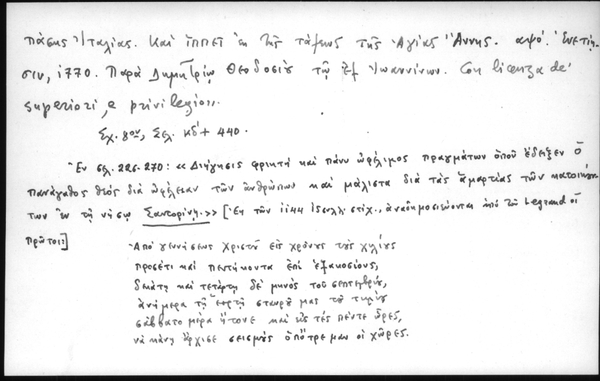 πάσης Ἰταλίας. Καὶ ἱππεῖ ἐκ τῆς τάξεως τῆς Ἁγίας Ἄννης. αψό. Ἐνετίῃ-
σιν, 1770. Παρὰ Δημητρίῳ Θεοδοσίῳ τῷ ἐξ Ἰωαννίνων. Con licenza de'
superiori, e privilegio».
Σχ. 8ον, Σελ. κδ' + 440.
Ἐν σελ. 226-270: «Διήγησις φρικτὴ καὶ πάνυ ὠφέλιμος πραγμάτων ὁποῦ ἔδειξεν ὁ
πανάγαθος Θεὸς διὰ ὠφέλειαν τῶν ἀνθρώπων καὶ μάλιστα διὰ τὰς ἁμαρτίας τῶν κατοικήσάν-
των ἐν τῇ νήσῳ Σαντορίνῃ.» [Ἐκ τῶν στίχ., ἀναδημοσιεύονται ὑπὸ τοῦ Legrand οἱ
πρῶτοι:]
Ἀπὸ γεννήσεως Χριστοῦ εἰς χρόνους τοὺς χιλίους
προσέτι καὶ πεντήκοντα ἐπὶ ἑξακοσίους,
δεκάτη καὶ τετάρτη δὲ μηνὸς τοῦ σεπτεμβρίου,
ἀνήμερα τῇ ἑορτῇ σταυροῦ μας τοῦ τιμίου
σάββατο μέρα ἤτονε καὶ εἰς τὲς πέντε ὧρες,
νὰ κάνῃ ἄρχισε σεισμὸς ὁποὔτρεμαν οἱ χῶρες.